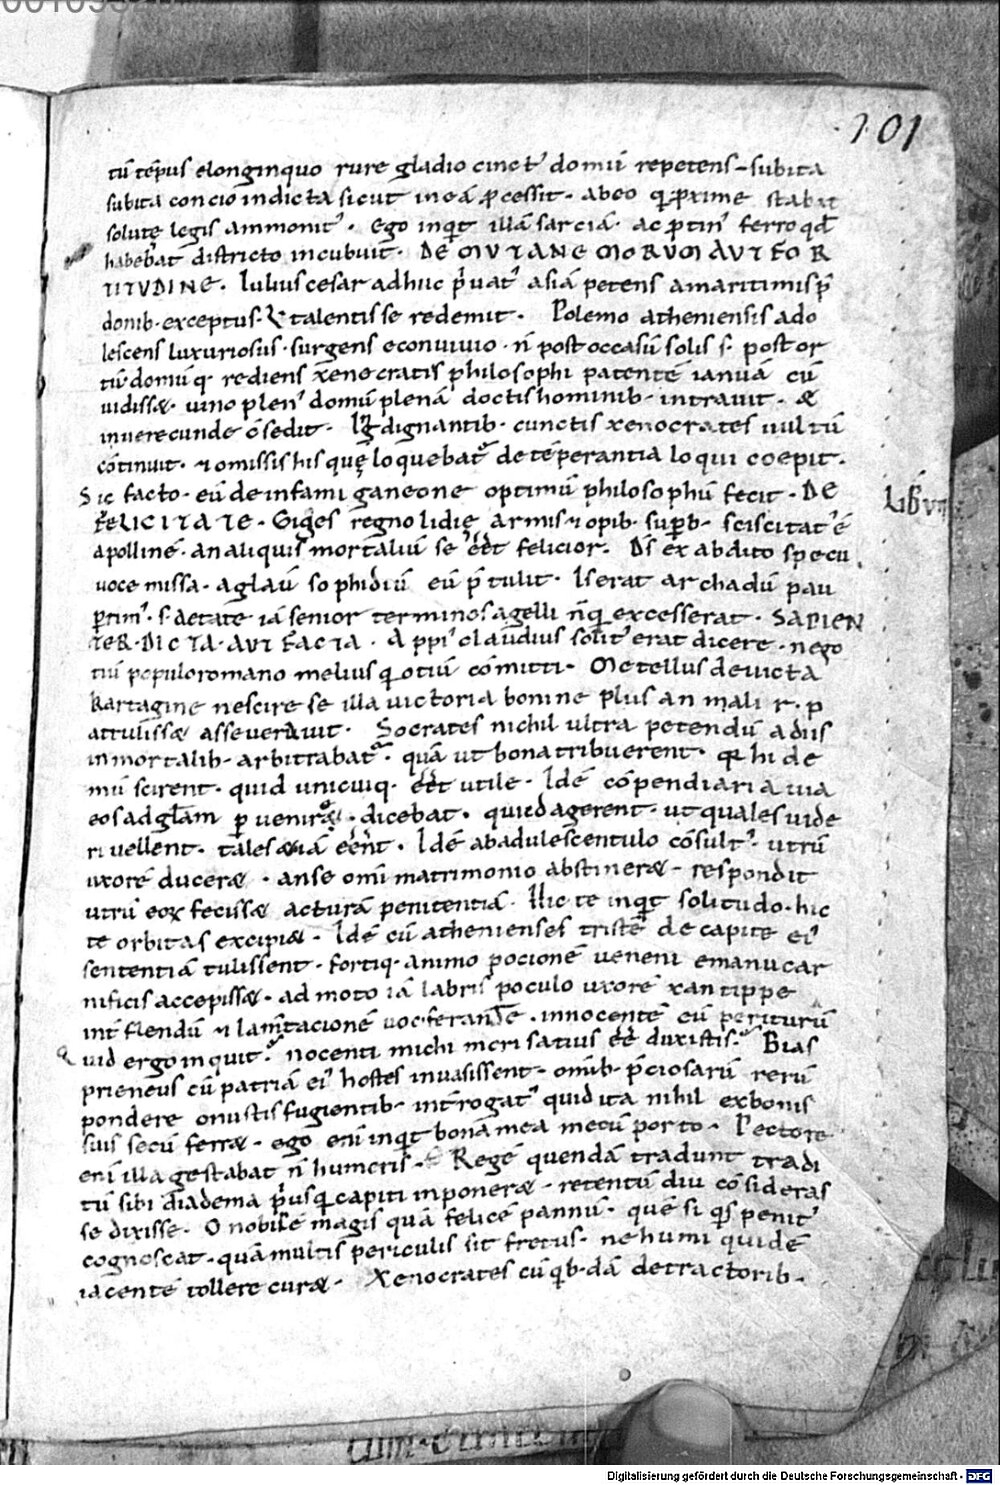 101
tū tēpus elonginquo rure gladio cinctꝰ domū repetens subita
subita concio indicta sicut in eā ꝓcessit · abeo q̇ ꝓxime stabat
solutę legis ammonitꝰ · Ego inqt illā sarciā · ac ꝓtinꝰ ferro qd̄
habebat districto incubuit · DE MUTANE MORUM AUT FOR
TITUDINE · Iulius cesar adhuc p̄uatꝰ asiā petens amaritimis p̄
donib · exceptus · talentis se redemit · Polemo atheniensis ado
lescens luxuriosus · surgens econuiuio · n̄ post occasū solis s · post or
tū domūq · rediens xenocratis philosophi patentē ianuā cū
uidissæ · uino plenꝰ domū plenā doctis hominib · intrauit · æ
inuerecunde ōsedit · Iḡ dignantib · cunctis xenocrates uultū
cōtinuit · ⁊ omissis his quę loquebatꝰ de tēperantia loqui coepit ·
Sic facto · eū de infami ganeone optimū philosophū fecit · DE
FELICITATE · Giges regno lidię armis ⁊ opib · supb · sciscitatꝰ ē
apollinē · an aliquis mortaliū se eēt felicior · Ds̄ ex abdito specu
Lib VII
uoce missa · aglaū sophidiū eū p̄tulit · Is erat archadū pau
ꝑrimꝰ · s · aetate iā senior terminos agelli nq̄ excesserat · SAPIEN
TER · DICTA · AUT FACTA · Appiꝰ claudius solitꝰ erat dicere · nego
tiū populo romano melius q̄ otiū cōmitti · Metellus deuicta
kartagine nescire se illa uictoria bonine plus an mali r · p
attulissæ asseuerauit · Socrates nichil ultra petendū adiis
inmortalib · arbitrabatꝰ · quā ut bona tribuerent · qr hi de
mū scirent · quid unicuiq · eēt utile · Idē cōpendiaria uia
eos ad gl̄am ꝑuenire · dicebat · qui id agerent · ut quales uide
ri uellent · tales æiā eēnt · Idē ab adulescentulo cōsultꝰ · utrū
uxorē duceræ · an se omī matrimonio abstineræ · respondit
utrū eoꝝ fecissæ acturā penitentiā · Hic te inqt solitudo · hic
te orbitas excipiæ · Idē cū athenienses tristē de capite eiꝰ
sententiā tulissent · fortiq · animo pocionē ueneni emanu car
nificis accepissæ · ad moto iā labris poculo uxore xantippe
int̄ flendū ⁊ lam̄tacionē uociferante · innocentē eū periturū
Quid ergo inquit · nocenti michi mori satius eē duxistis · Bias
prieneus cū patriā eiꝰ hostes inuasissent · omib · p̄ciosarū rerū
pondere onustis fugientib · int̄rogatꝰ quid ita nihil ex bonis
suis secū ferræ · ego eni inqt bona mea mecū porto · Pectore
eni illa gestabat n̄ humeris · Regē quendā tradunt tradi
tū sibi diadema p̄usq̄ capiti inponeræ · retentū diu cōsideras
se dixisse · O nobilē magis quā felicē pannū · quē si qs penitꝰ
cognoscat · quā multis periculis sit fretus · ne humi quidē
iacentē tollere curæ · Xenocrates cū qb · dā detractorib ·
Digitalisierung gefördert durch die Deutsche Forschungsgemeinschaft - DFG